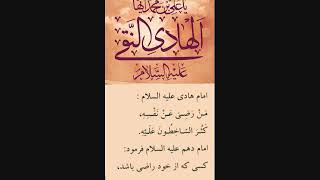 یا علی بن محمد ایها
الهادی النقی
علیه السلام
امام هادی علیه السلام :
مَنْ رَضِیَ عَنْ نَفْسِهِ،
کَثُرَ السّاخِطُونَ عَلَیْهِ.
امام دهم علیه السلام فرمود:
کسی که از خود راضی باشد،